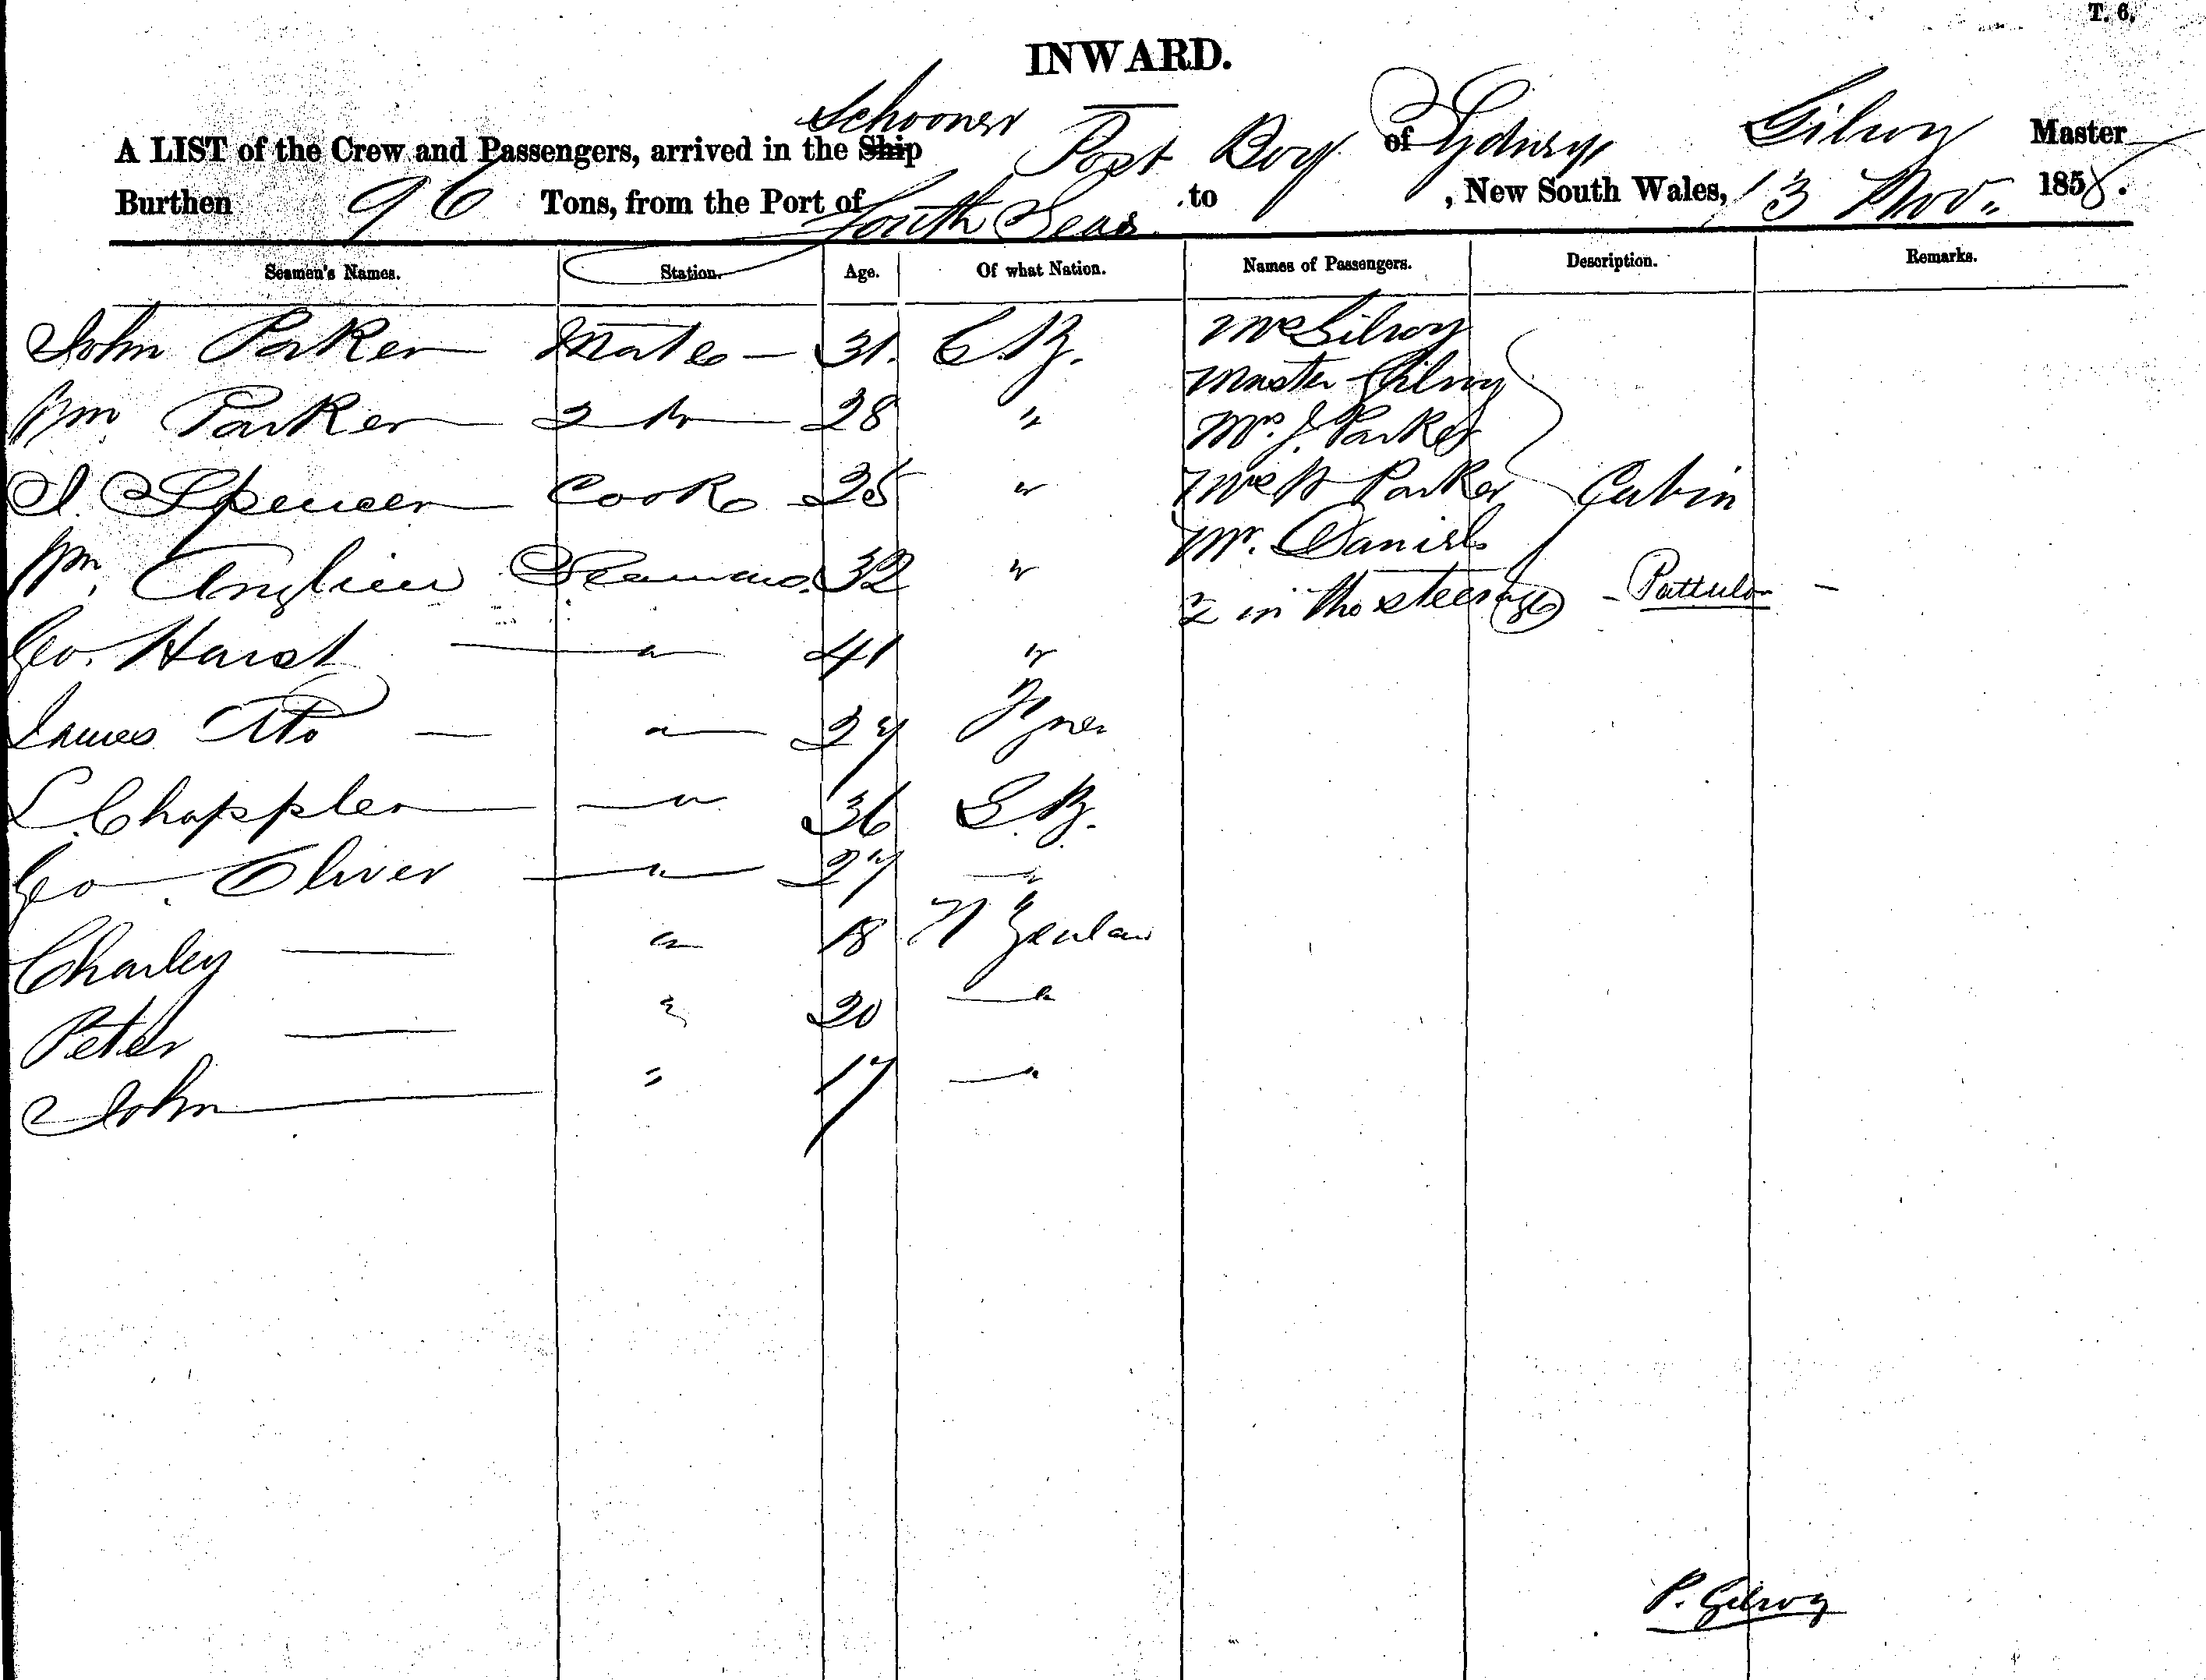 T. 6.
INWARD.
Schooner
A LIST of the Crew and Passengers, arrived in the Ship Post Boy of Sydney, Gilroy Master
Burthen 96 Tons, from the Port of South Seas to , New South Wales, 13 Nov. 1858.
Seamen's Names. Station. Age. Of what Nation. Names of Passengers. Description. Remarks.
John Parker Mate 31. G.B. Mrs Gilroy
Master Gilroy
Wm. Parker 2 28 " Mrs. J. Parker
Spencer Cook 25 " Mrs W Parker Cabin
Mr. Daniels
Wm. Seaman 32 " 2 in the steerage
Geo. " 41 "
James " 27
L. Chappler " 36 G.B.
Geo. Oliver " 27 "
Charley " 18 N Zealan
Peter " 20 "
John " 17 "
P. Gilroy